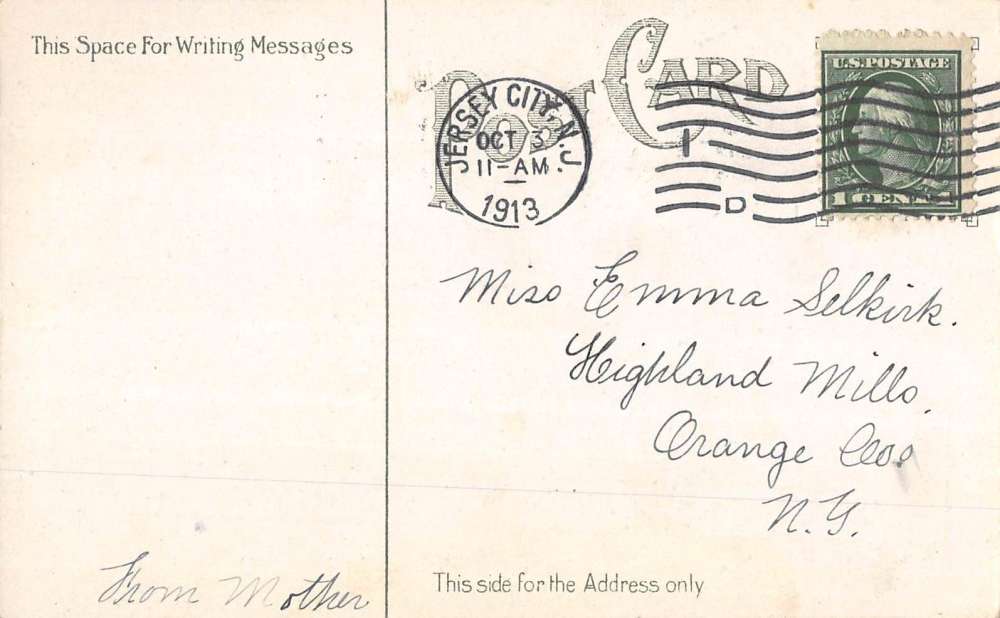 This Space For Writing Messages
Post Card
JERSEY CITY, N.J.
OCT 3
11-AM
1913
1
D
U.S. POSTAGE
1 CENT 1
Miss Emma Selkirk.
Highland Mills,
Orange Co.
N.Y.
From Mother
This side for the Address only